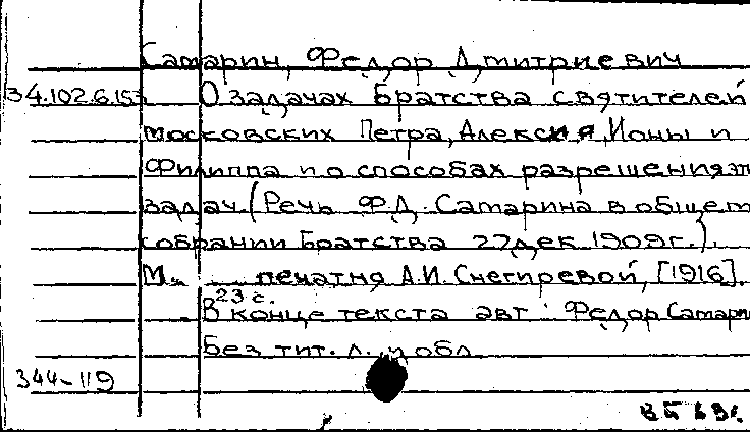 Самарин, Федор Дмитриевич
34.102.6.153 О задачах Братства святителей
московских Петра, Алексия, Ионы и
Филиппа и о способах разрешения
задач (Речь Ф.Д. Самарина в общем
собрании Братства 27 дек. 1909 г.).
М., печатня А.И. Снегиревой, [1916].
23 с.
В конце текста авт: Федор Самарин
Без тит. л. и обл.
344-119